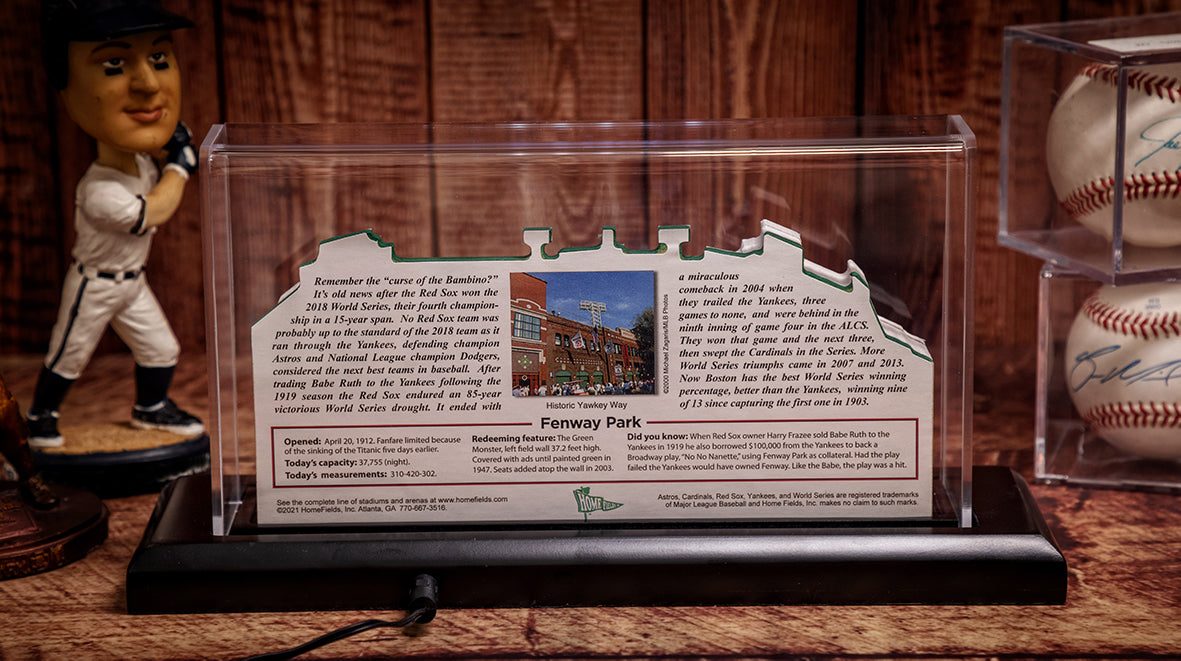 Remember the "curse of the Bambino?"
It's old news after the Red Sox won the
2018 World Series, their fourth champion-
ship in a 15-year span. No Red Sox team was
probably up to the standard of the 2018 team as it
ran through the Yankees, defending champion
Astros and National League champion Dodgers,
considered the next best teams in baseball. After
trading Babe Ruth to the Yankees following the
1919 season the Red Sox endured an 85-year
victorious World Series drought. It ended with
©2000 Michael Zagaris/MLB Photos
Historic Yawkey Way
a miraculous
comeback in 2004 when
they trailed the Yankees, three
games to none, and were behind in the
ninth inning of game four in the ALCS.
They won that game and the next three,
then swept the Cardinals in the Series. More
World Series triumphs came in 2007 and 2013.
Now Boston has the best World Series winning
percentage, better than the Yankees, winning nine
of 13 since capturing the first one in 1903.
Fenway Park
Opened: April 20, 1912. Fanfare limited because
of the sinking of the Titanic five days earlier.
Today's capacity: 37,755 (night).
Today's measurements: 310-420-302.
Redeeming feature: The Green
Monster, left field wall 37.2 feet high.
Covered with ads until painted green in
1947. Seats added atop the wall in 2003.
Did you know: When Red Sox owner Harry Frazee sold Babe Ruth to the
Yankees in 1919 he also borrowed $100,000 from the Yankees to back a
Broadway play, "No No Nanette," using Fenway Park as collateral. Had the play
failed the Yankees would have owned Fenway. Like the Babe, the play was a hit.
See the complete line of stadiums and arenas at www.homefields.com
©2021 HomeFields, Inc. Atlanta, GA 770-667-3516.
HOME FIELDS
Astros, Cardinals, Red Sox, Yankees, and World Series are registered trademarks
of Major League Baseball and Home Fields, Inc. makes no claim to such marks.